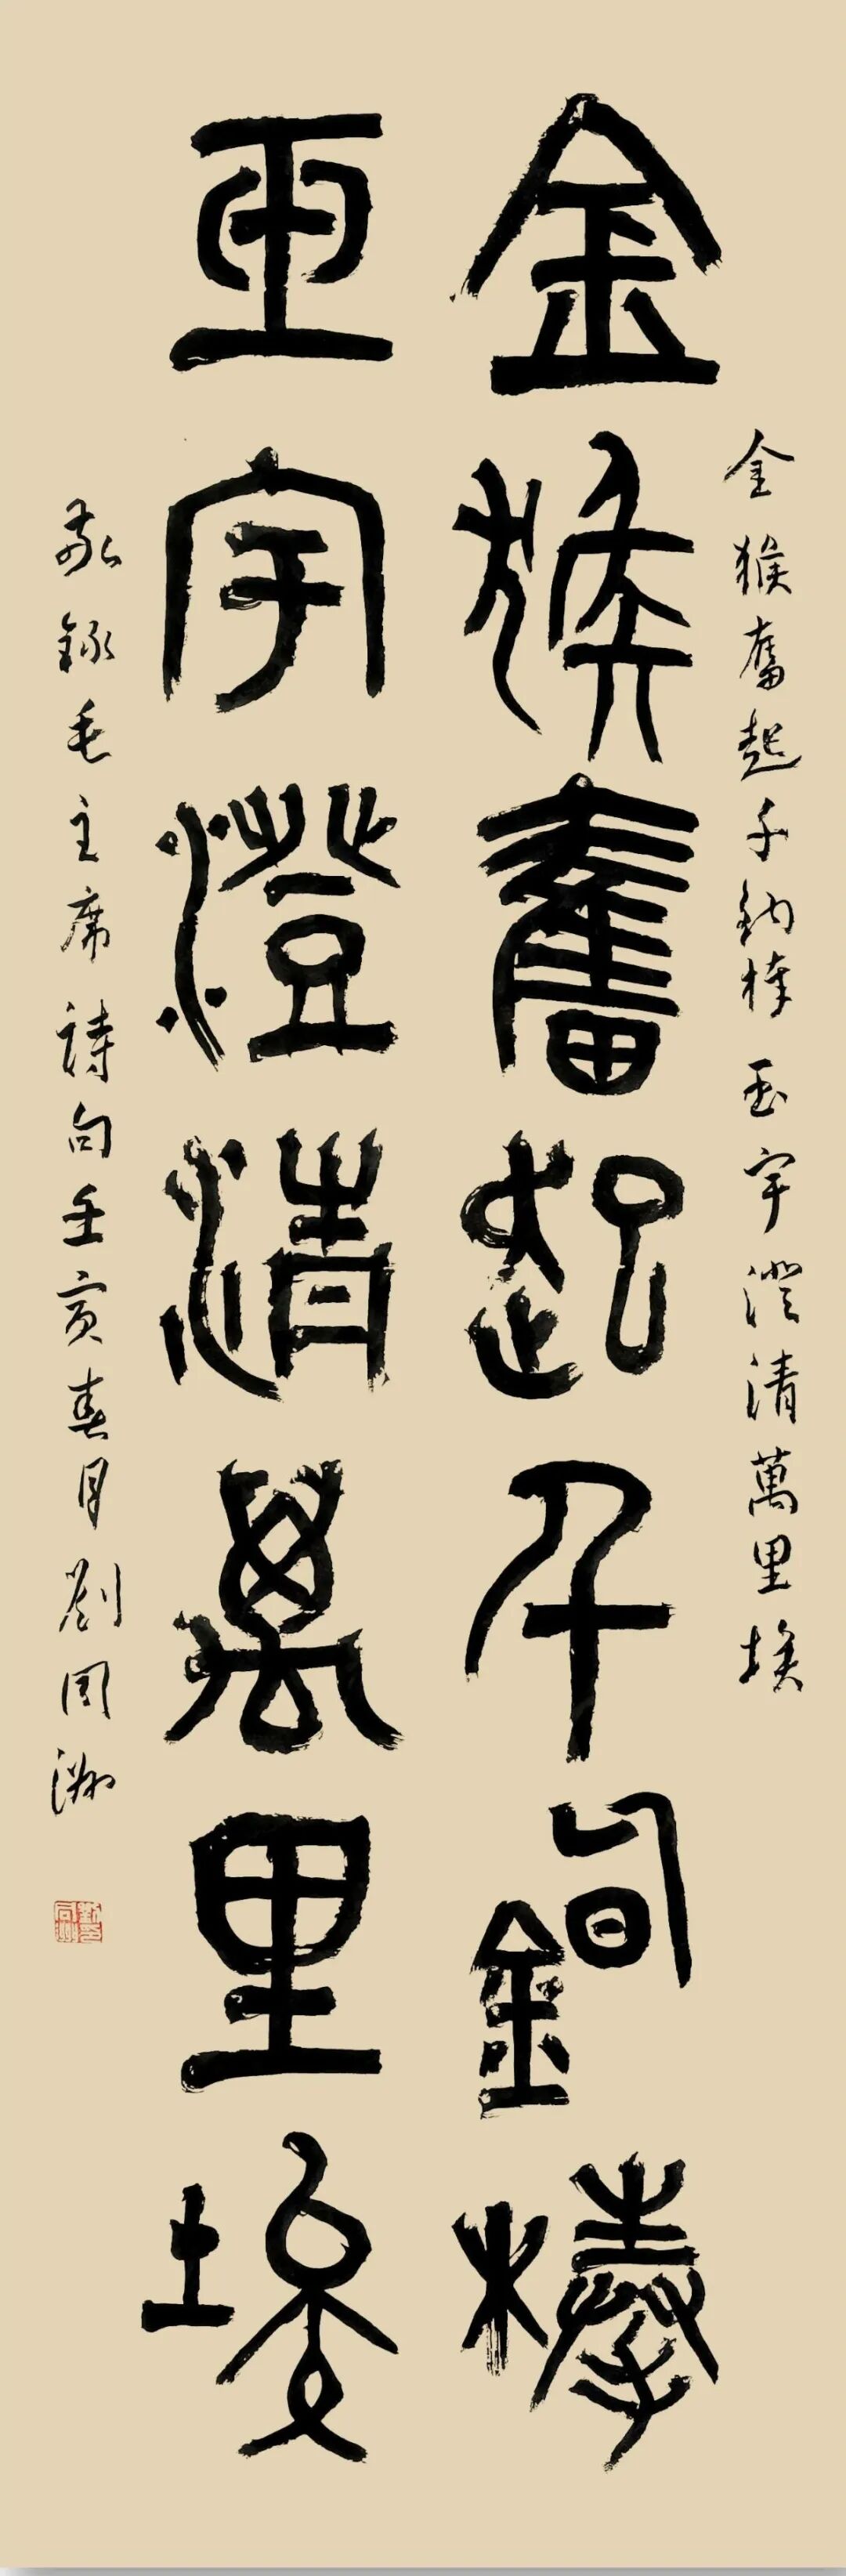 金猴奮起千鈞棒 玉宇澄清萬里埃
金猴奮起千鈞棒
玉宇澄清萬里埃
敬錄毛主席詩句壬寅春月劉同